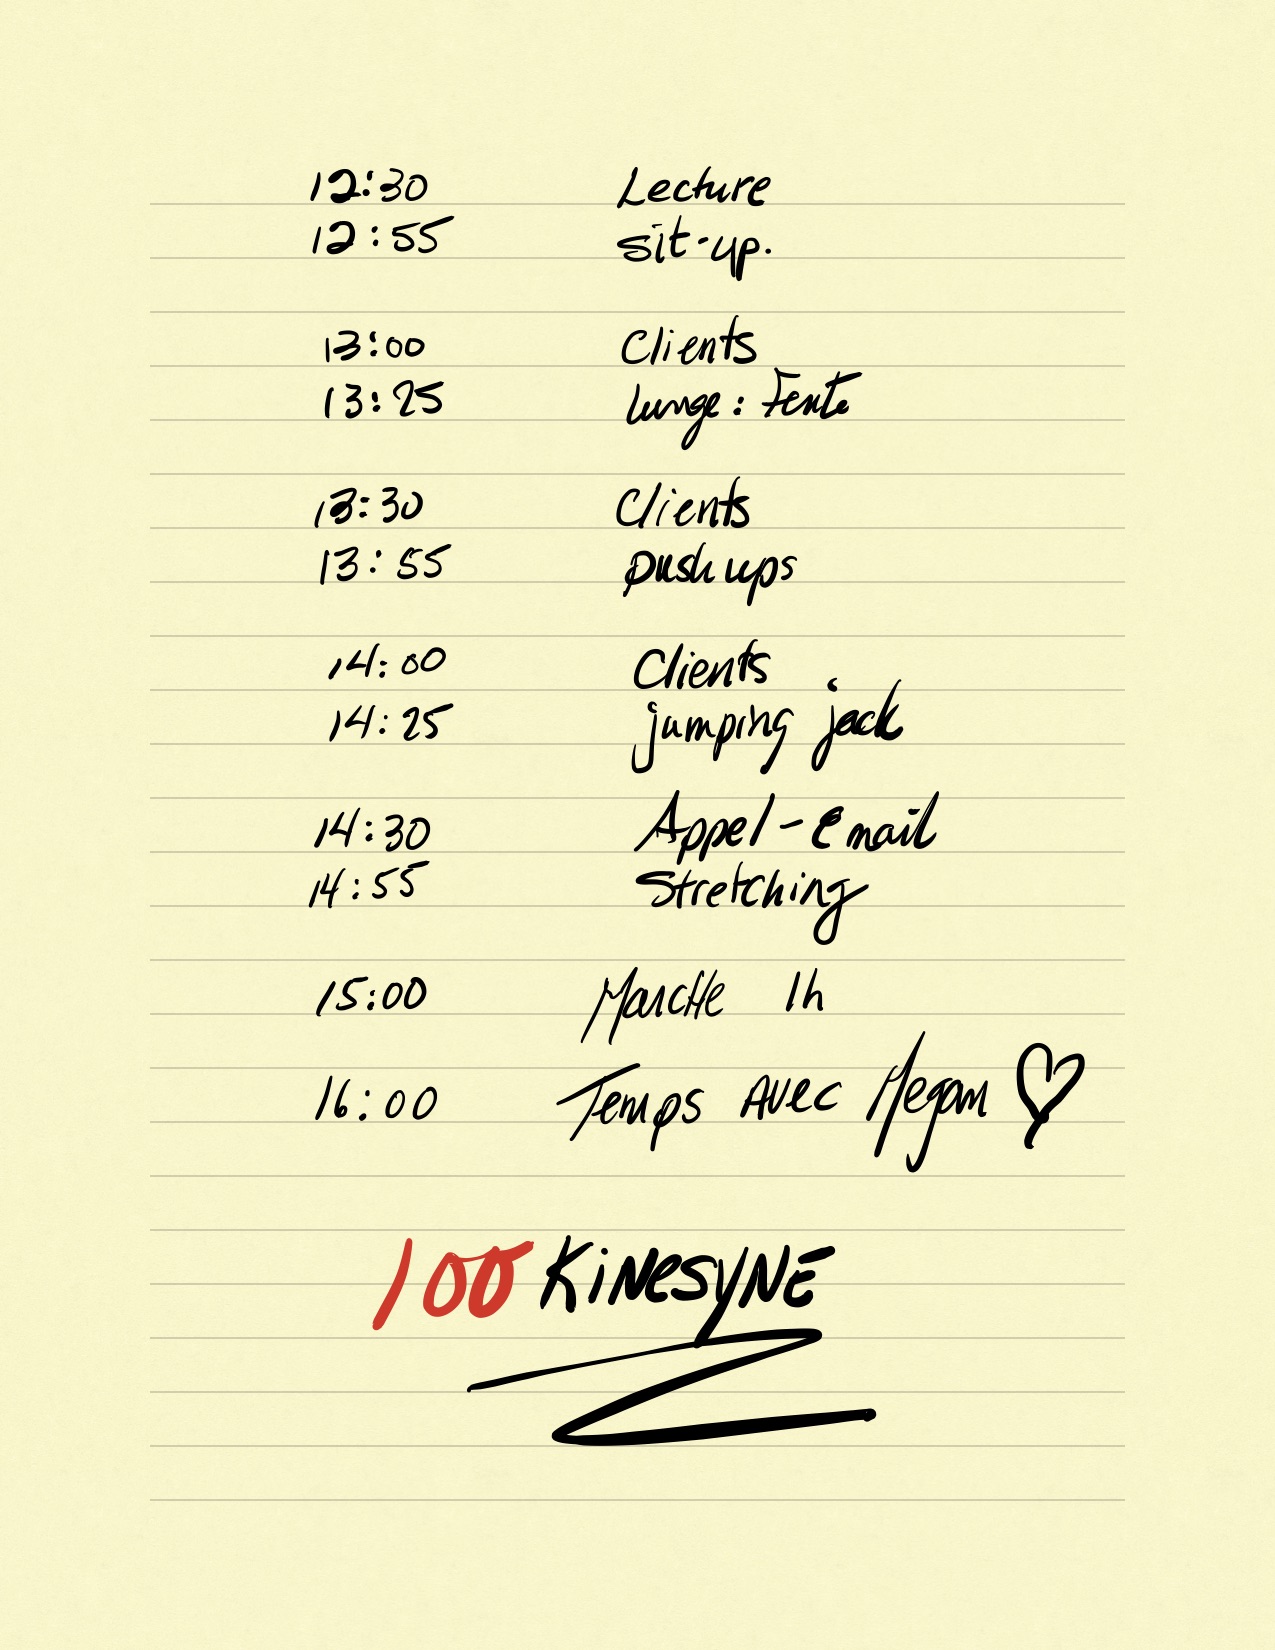 12:30 Lecture
12:55 sit-up.
13:00 Clients
13:25 lunge: Fente
13:30 Clients
13:55 push ups
14:00 Clients
14:25 jumping jack
14:30 Appel-Email
14:55 Stretching
15:00 Marche 1h
16:00 Temps Avec Megan ♡
100 KiNesyNE